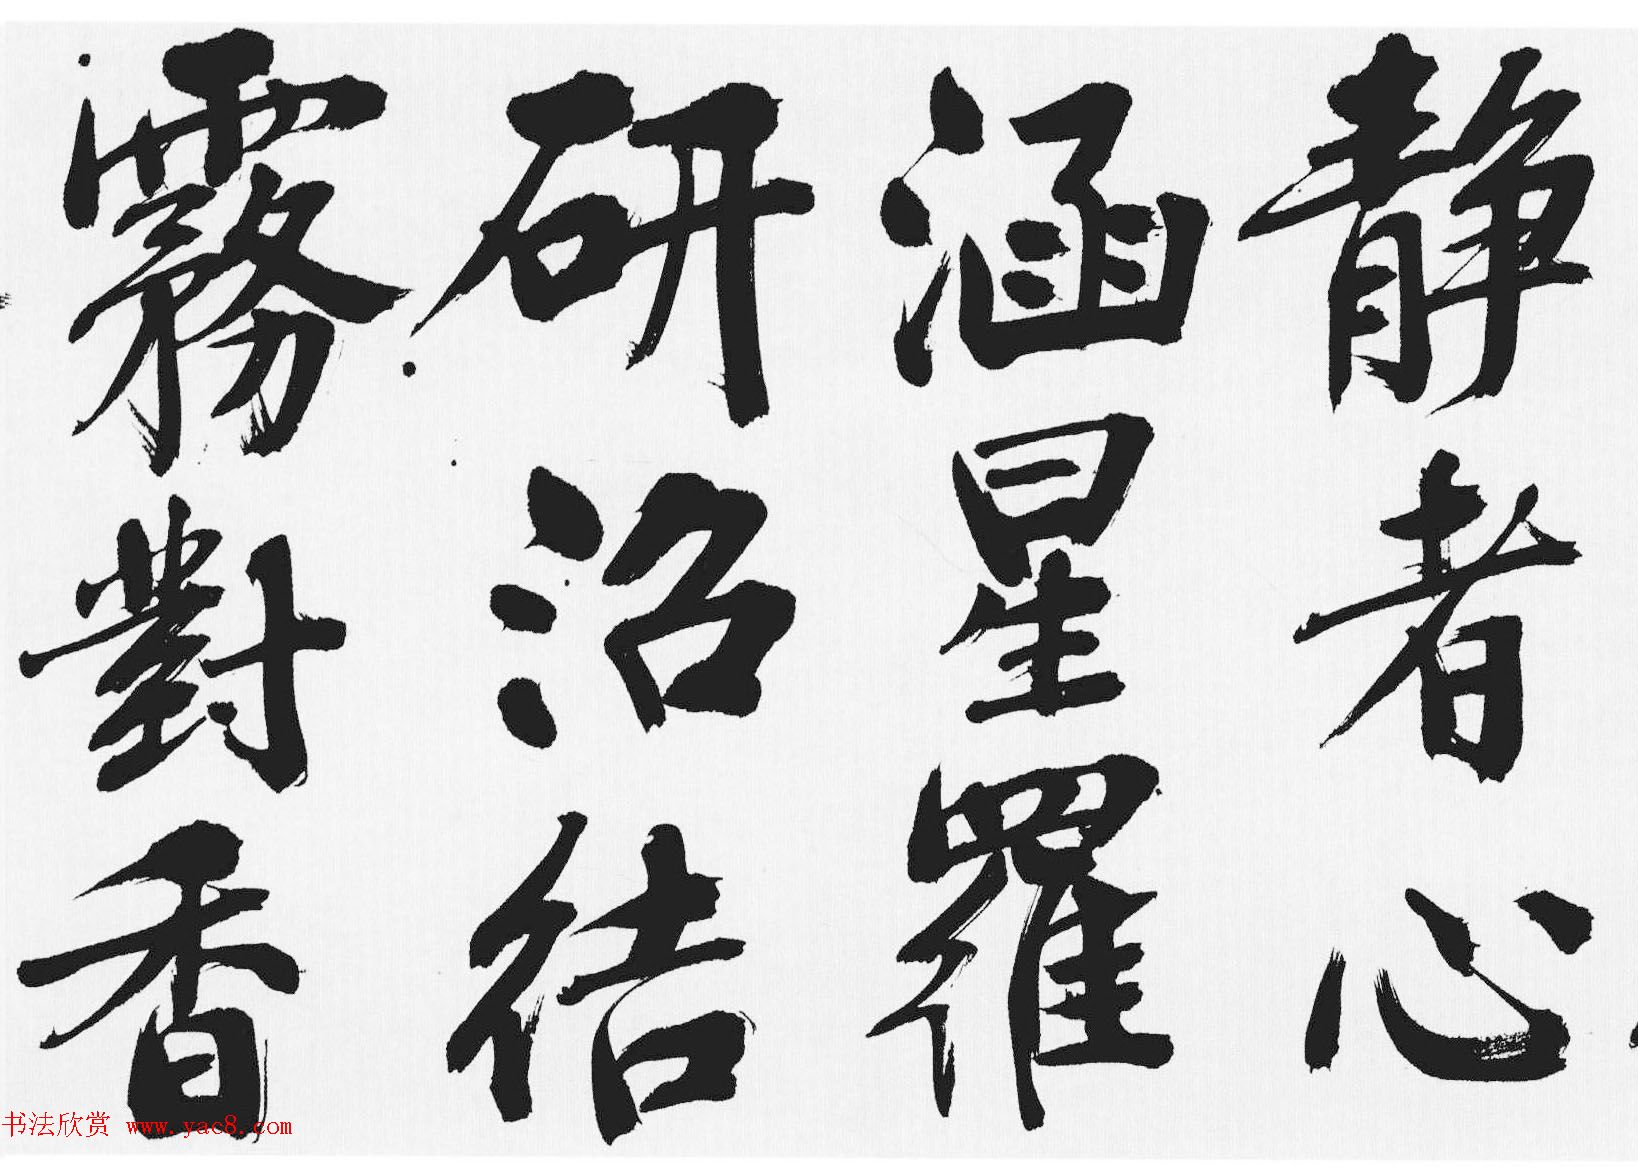 静者心
涵星羅
研沼結
霧對香
书法欣赏 www.yac8.com